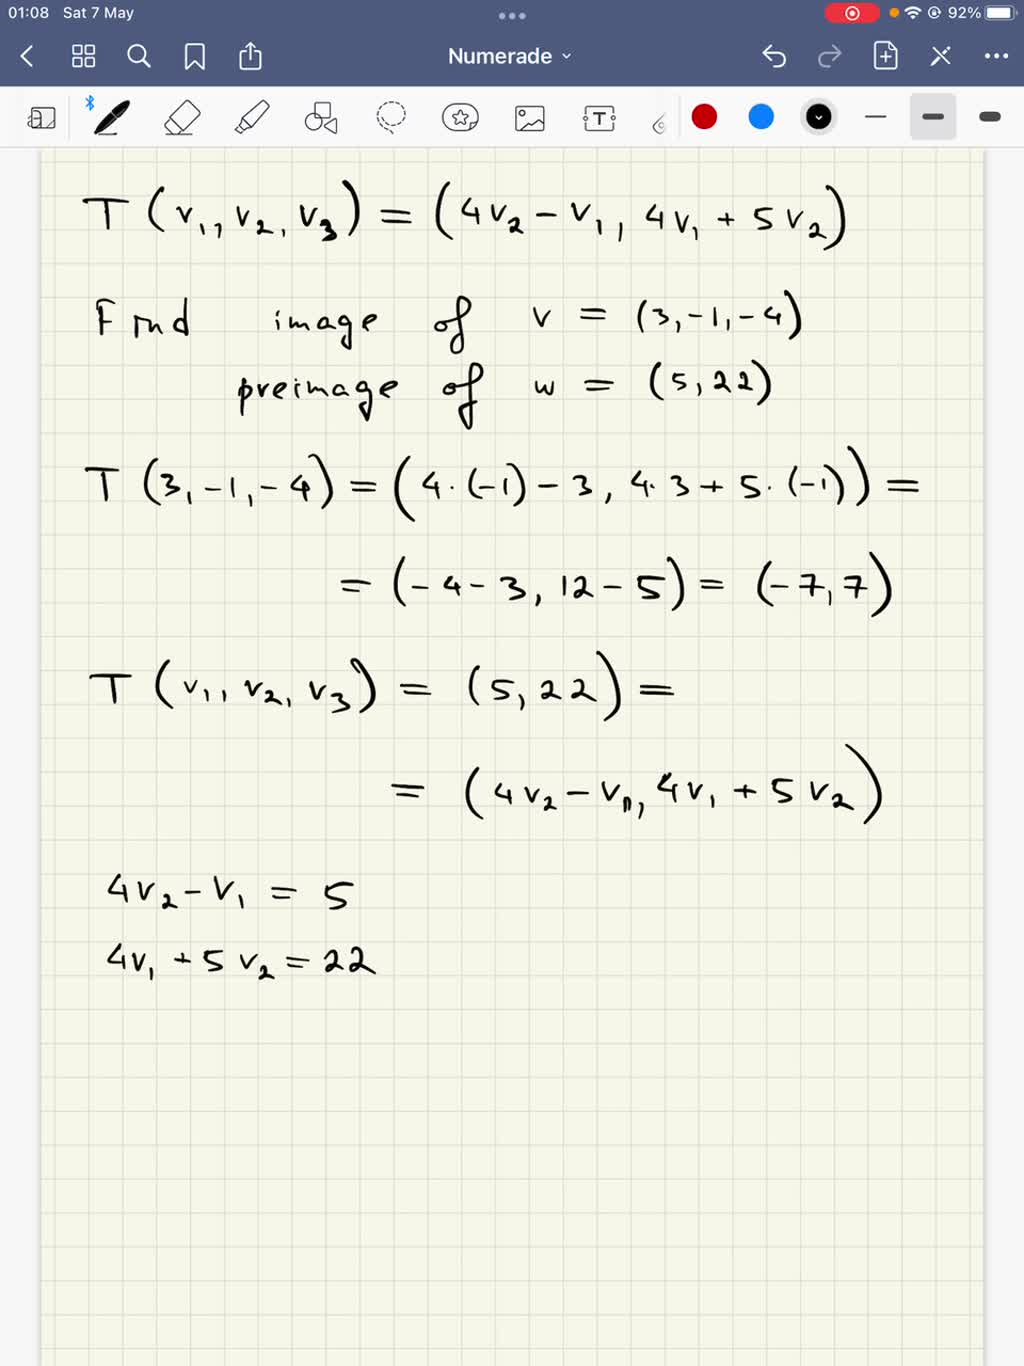 01:08 Sat 7 May 92%
Numerade
T (v₁, v₂, v₃) = (4v₂ - v₁, 4v₁ + 5v₂)
Find image of v = (3, -1, -4)
preimage of w = (5, 22)
T (3, -1, -4) = (4·(-1) - 3, 4·3 + 5·(-1)) =
= (-4 - 3, 12 - 5) = (-7, 7)
T (v₁, v₂, v₃) = (5, 22) =
= (4v₂ - v₁, 4v₁ + 5v₂)
4v₂ - v₁ = 5
4v₁ + 5v₂ = 22